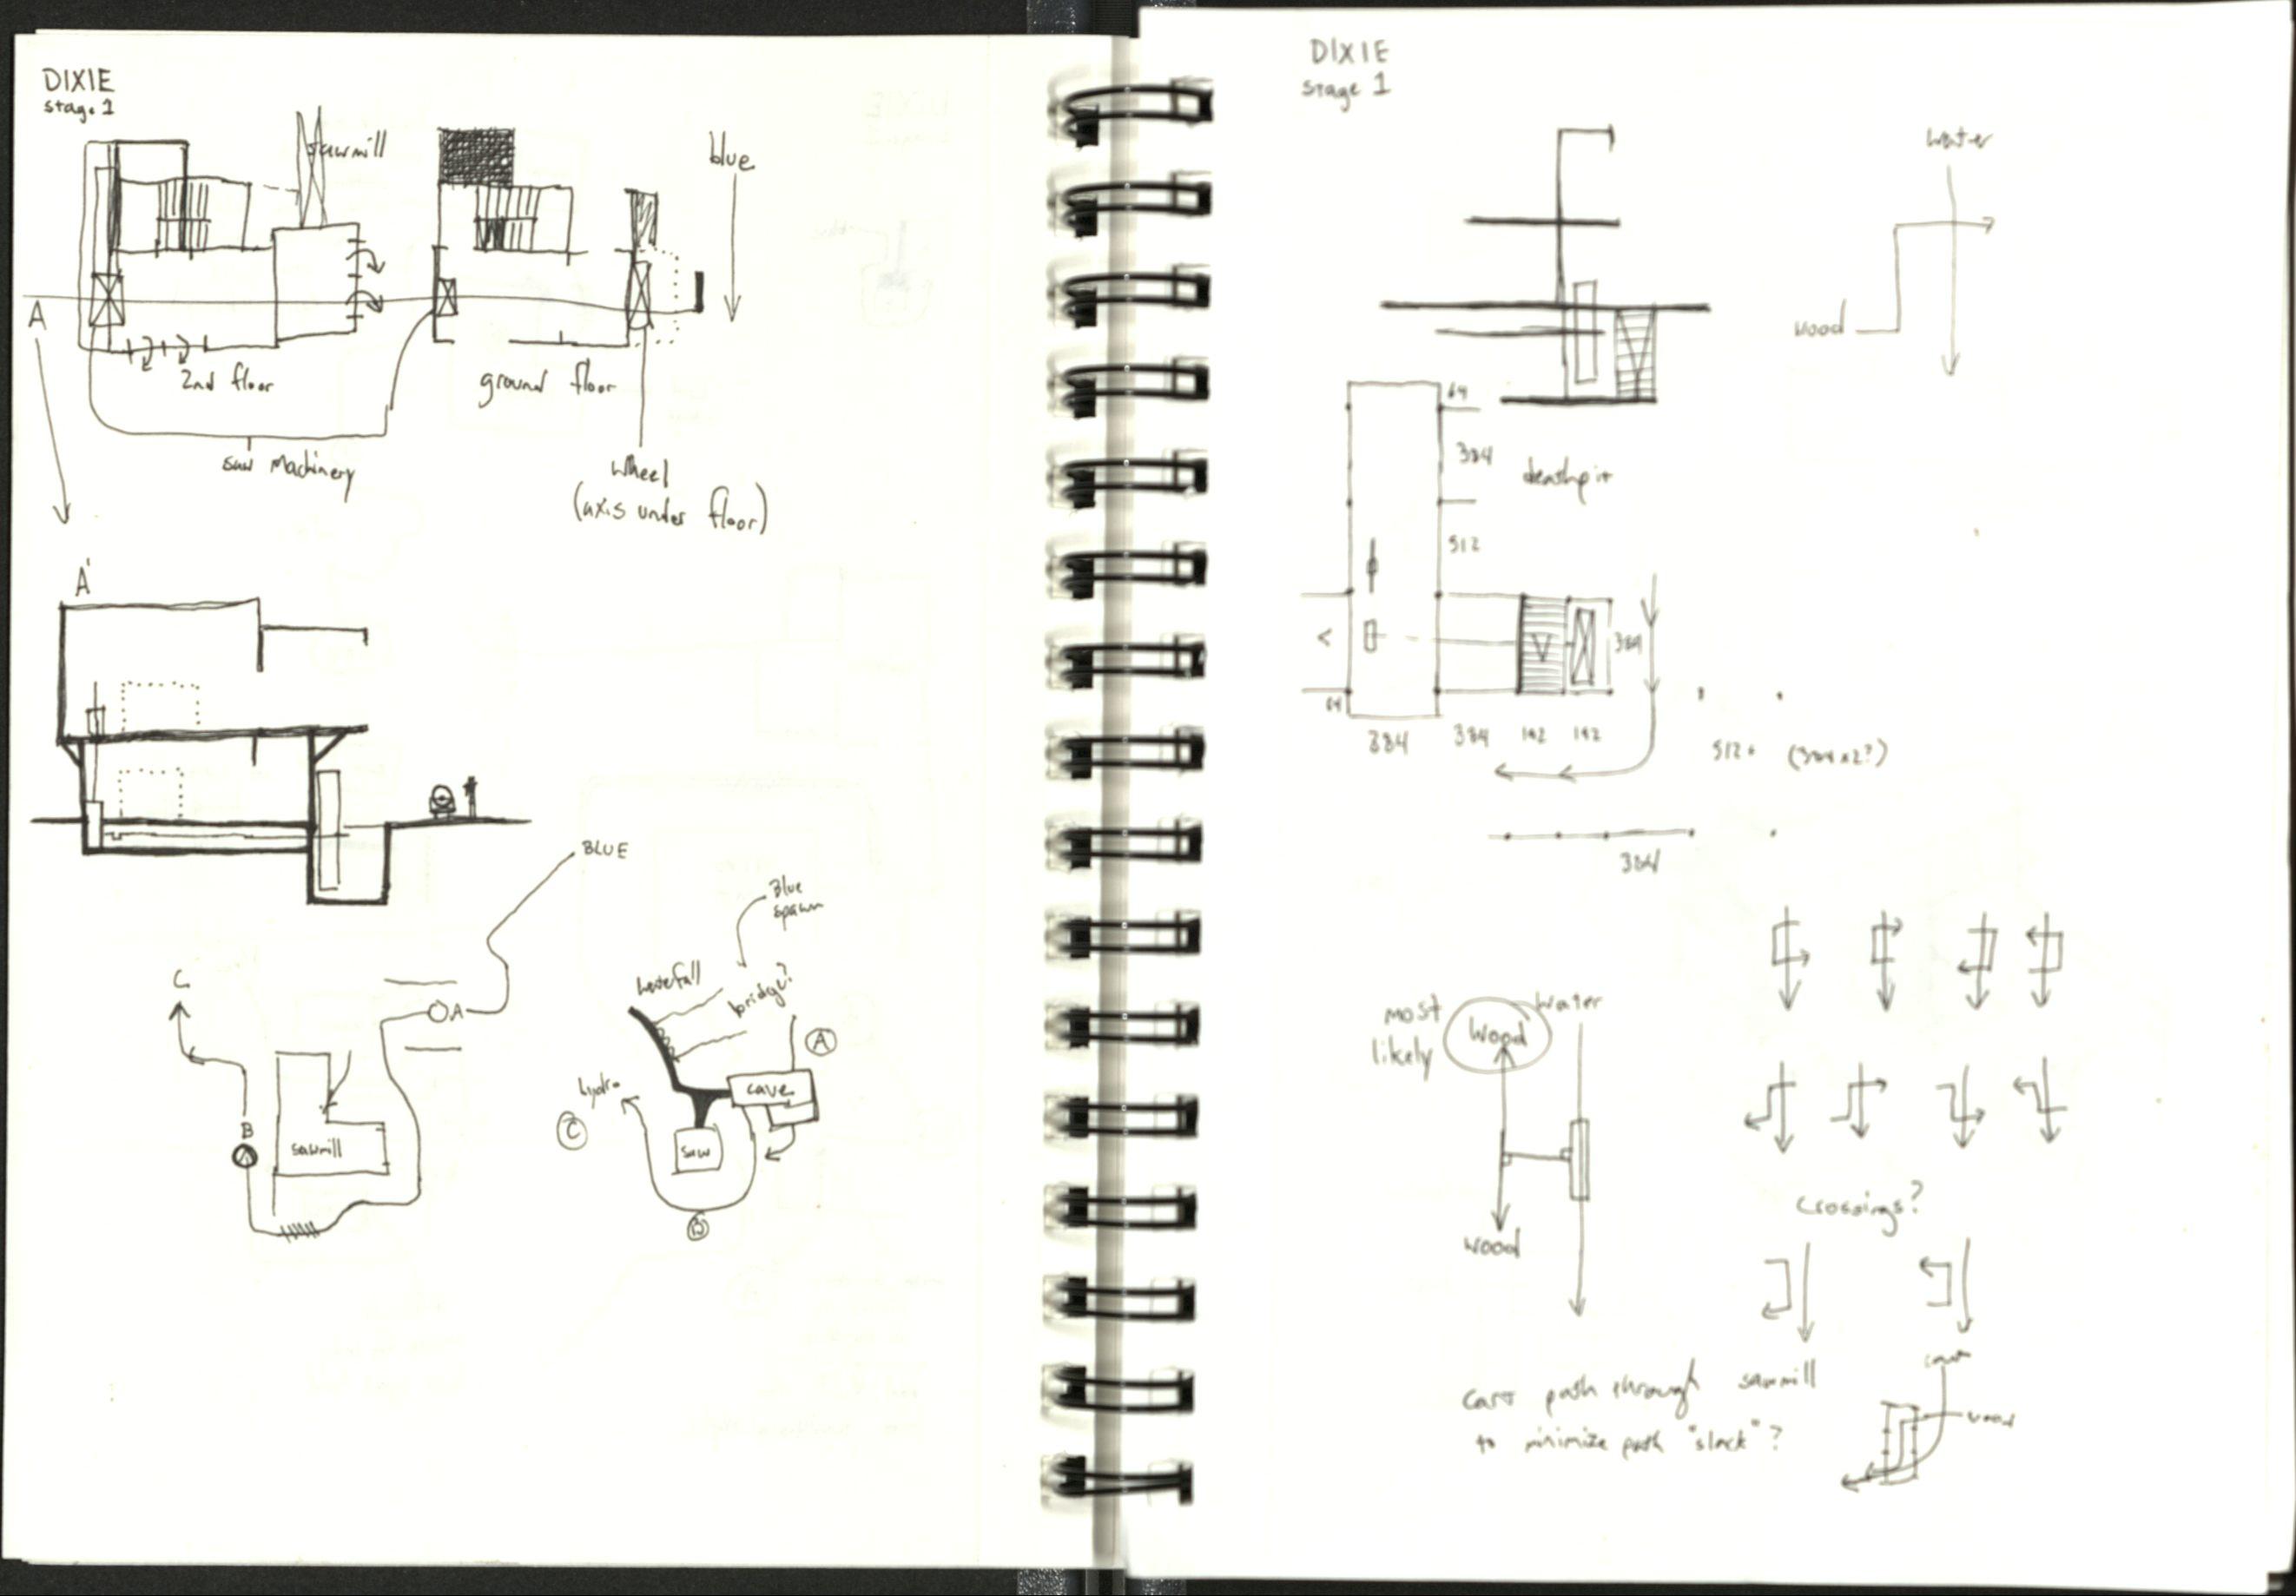 DIXIE
stage 1
sawmill
blue
A
2nd floor
ground floor
saw machinery
wheel
(axis under floor)
A'
BLUE
Blue
spawn
waterfall
bridge?
C
A
A
hydro
cave
C
B
saw
sawmill
B
DIXIE
stage 1
water
wood
64
384
deathpit
512
384
64
384
384
192
192
512
(384x2?)
384
most
likely
wood
water
wood
crossings?
cart path through sawmill
to minimize path "slack"?
cart
wood